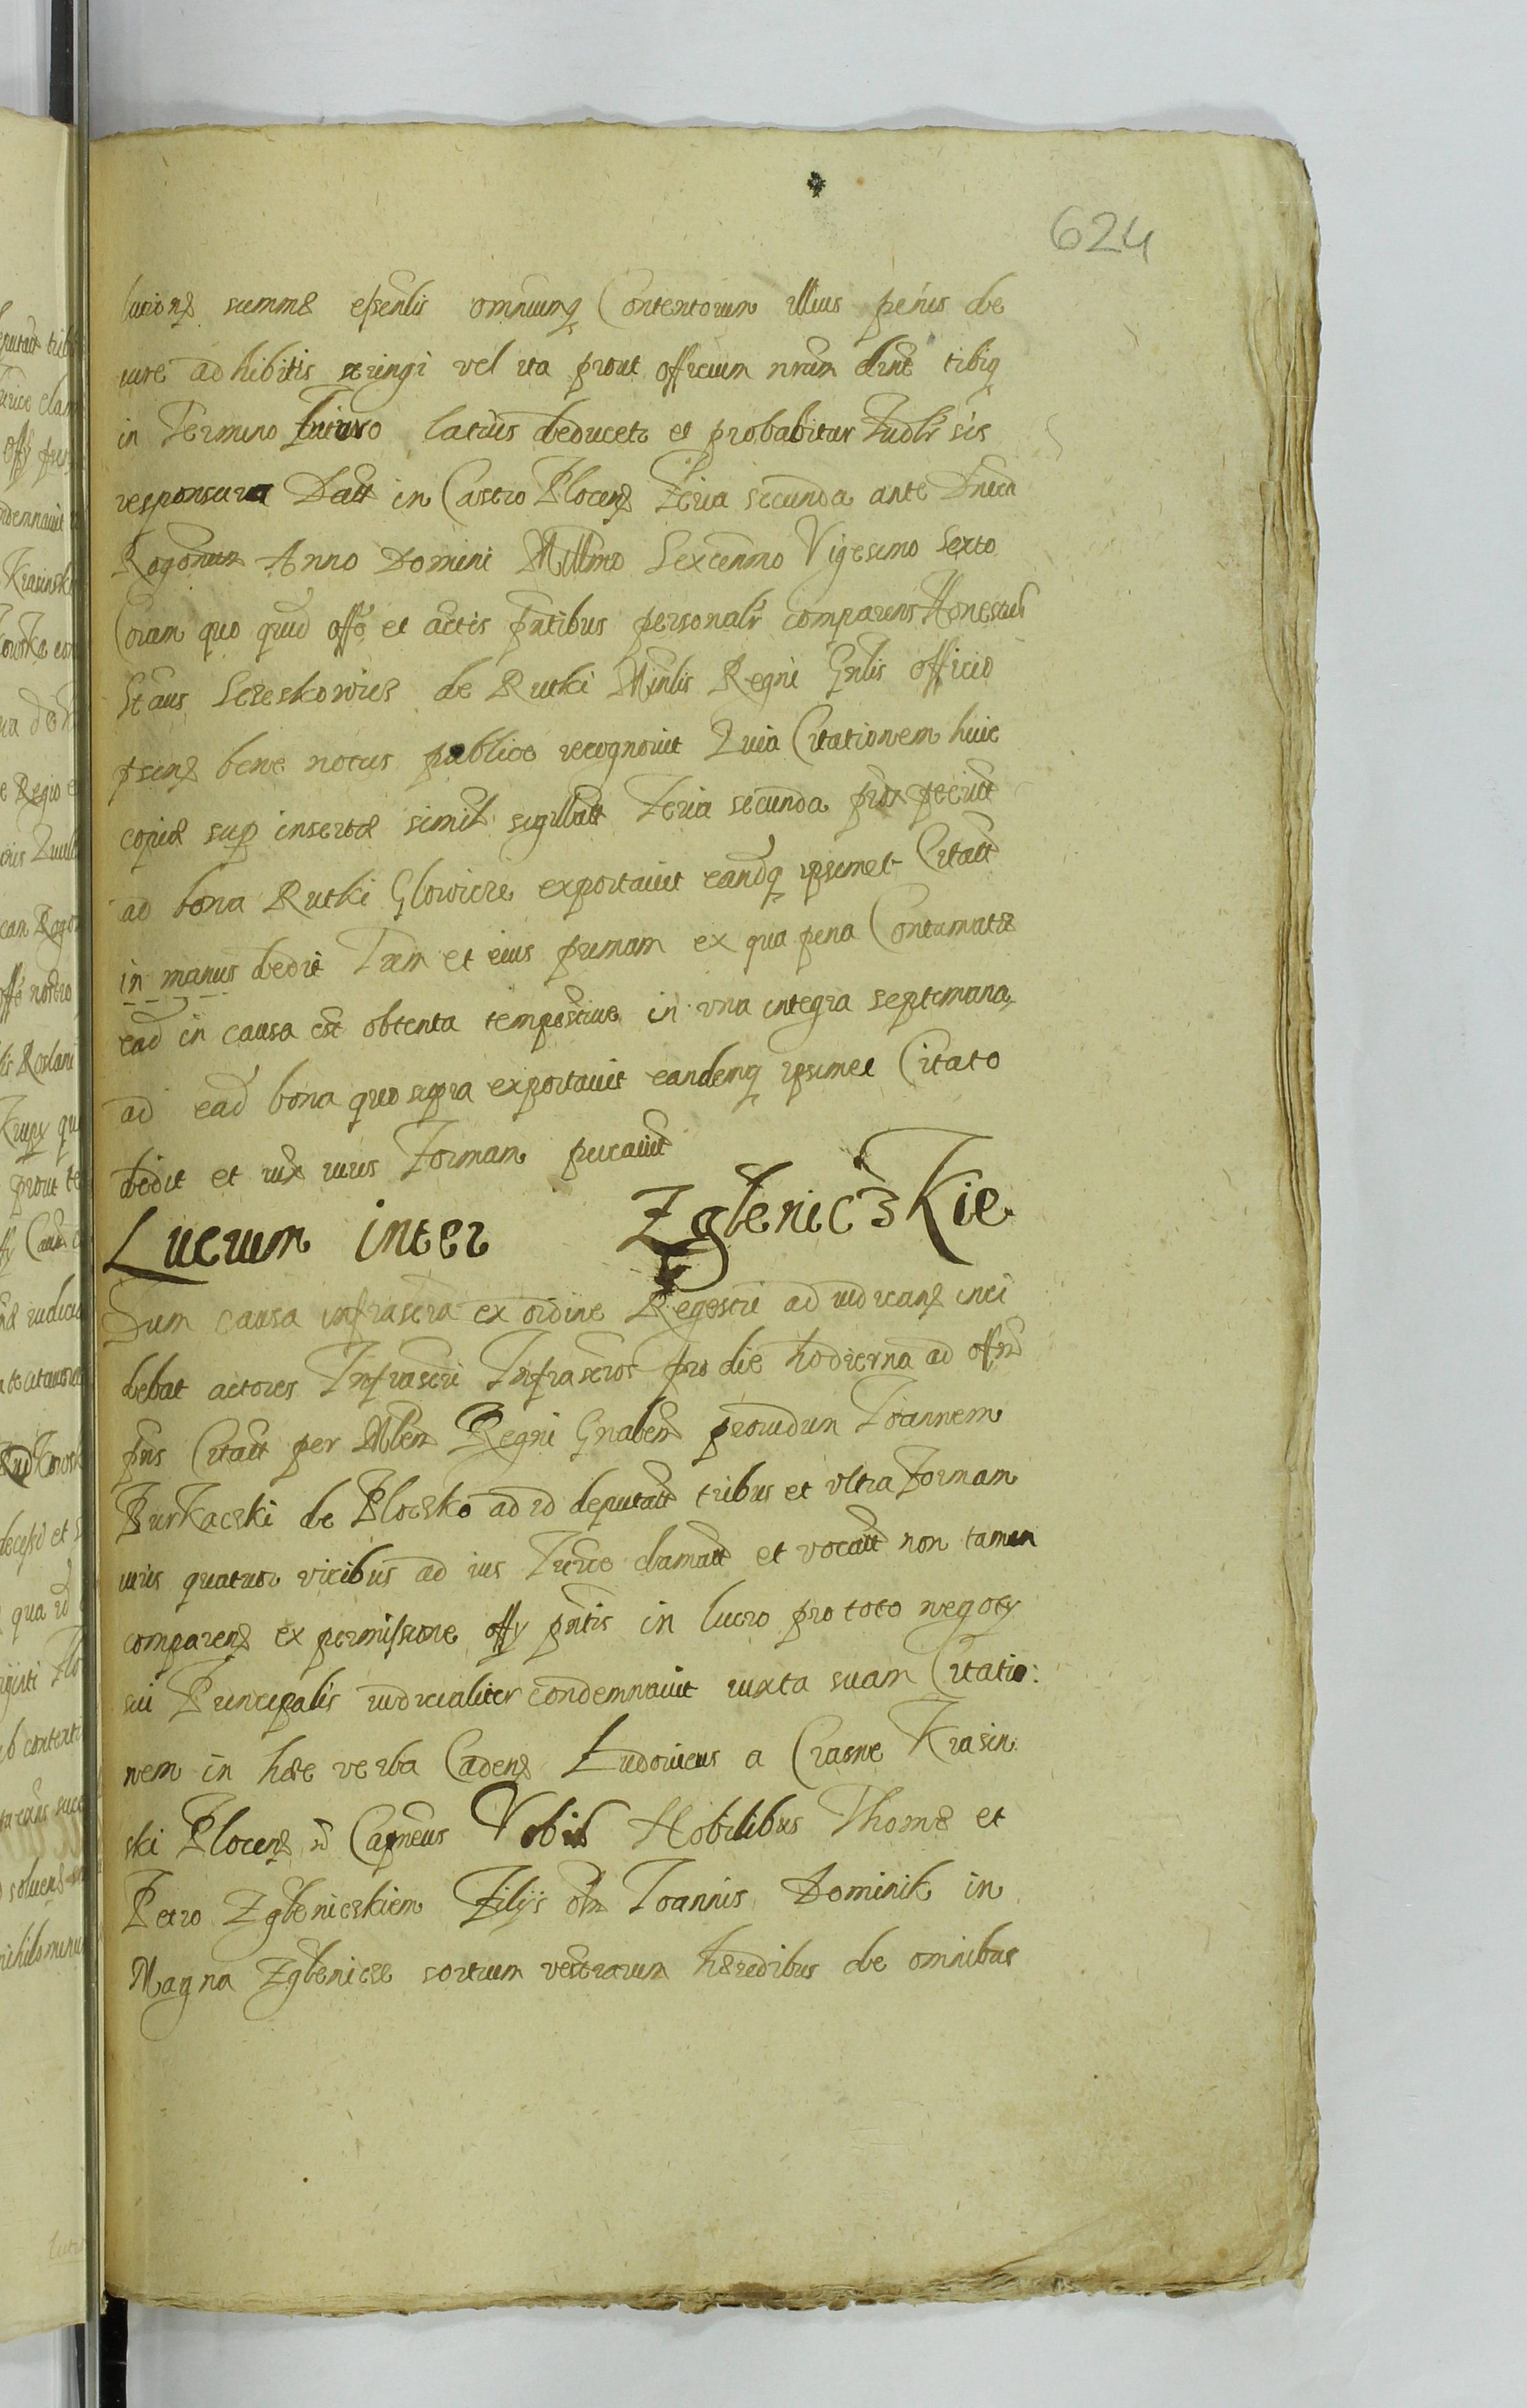 624
summæ essentlis omniumq Contentorum illius penis de
iure adhibitis stringi vel ita prout officium nrum tibiq
in Termino futuro latius deducetr et probabitur Judlr sis
responsura Datt in Castro Plocen Feria secunda ante Dnica
Rogonum Anno Domini Millmo Sexcenmo Vigesimo Sexto
Coram quo quid offo et actis pntibus personalr comparens Honestus
Staus de Rutki Minlis Regni Gnlis officio
psen bene notus publice recognovit Quia Citationem huic
copiæ sup insertæ simil sigillatt Feria secunda prox
ad bona Rutki Glowicze exportavit eandq ipsimet Citatt
in manus dedit Tam et eius primam ex qua pena Contumatiæ
ead in causa est obtenta tempestive in una integra septimana
ad ead bona quo supra exportavit eandemq ipsimet Citato
dedit et iux iuris Formam
Lucrum inter Zglenicżkie
Dum causa infrascra ex ordine Regestri ad iudican inci
debat actores Infrascri Infrascros pro die hodierna ad offm
pns Citatt per Mlem Regni Gnalem providum Joannem
de Ploczko ad id deputatt tribus et ultra Formam
iuris quatuor vicibus ad ius Terrice clamatt et vocatt non tamen
comparen ex permissione offy pntis in lucro pro toto negoty
sui Principalis iudicialiter condemnavit iuxta suam Citatio:
nem in hæc verba Caden Ludovicus a Crasne Krasin
ski Plocen Capneus Vobis Nobilibus Thomæ et
Petro Zgleniczkiem Filijs olm Joannis Dominik in
Magna Zglenicze sortium vestrarum hæredibus de omnibus